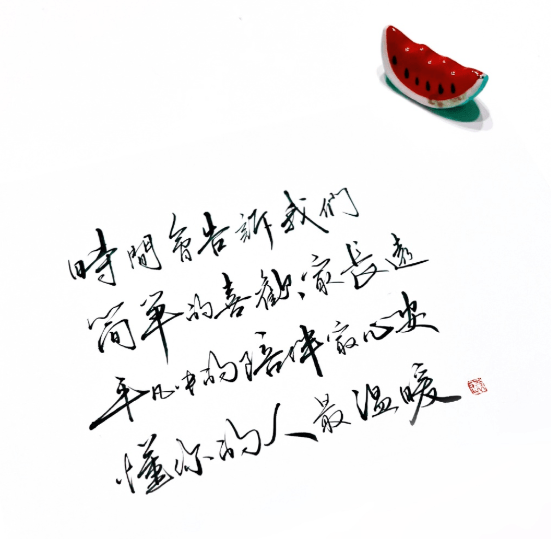 時間會告訴我們
简单的喜歡㝡長遠
平凡中的陪伴㝡心安
懂你的人最温暖